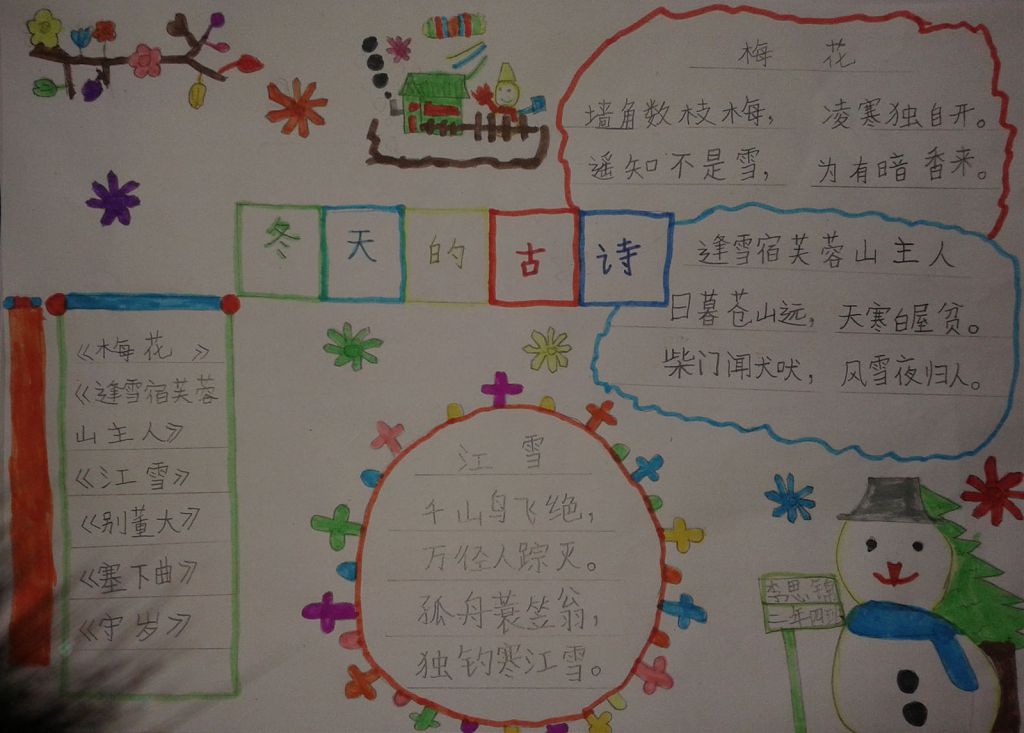 冬天的古诗
梅 花
墙角数枝梅， 凌寒独自开。
遥知不是雪， 为有暗香来。
逢雪宿芙蓉山主人
日暮苍山远， 天寒白屋贫。
柴门闻犬吠， 风雪夜归人。
《梅花 》
《逢雪宿芙蓉
山主人》
《江雪》
《别董大》
《塞下曲》
《守岁》
江 雪
千山鸟飞绝，
万径人踪灭。
孤舟蓑笠翁，
独钓寒江雪。
李思锦
二年四班